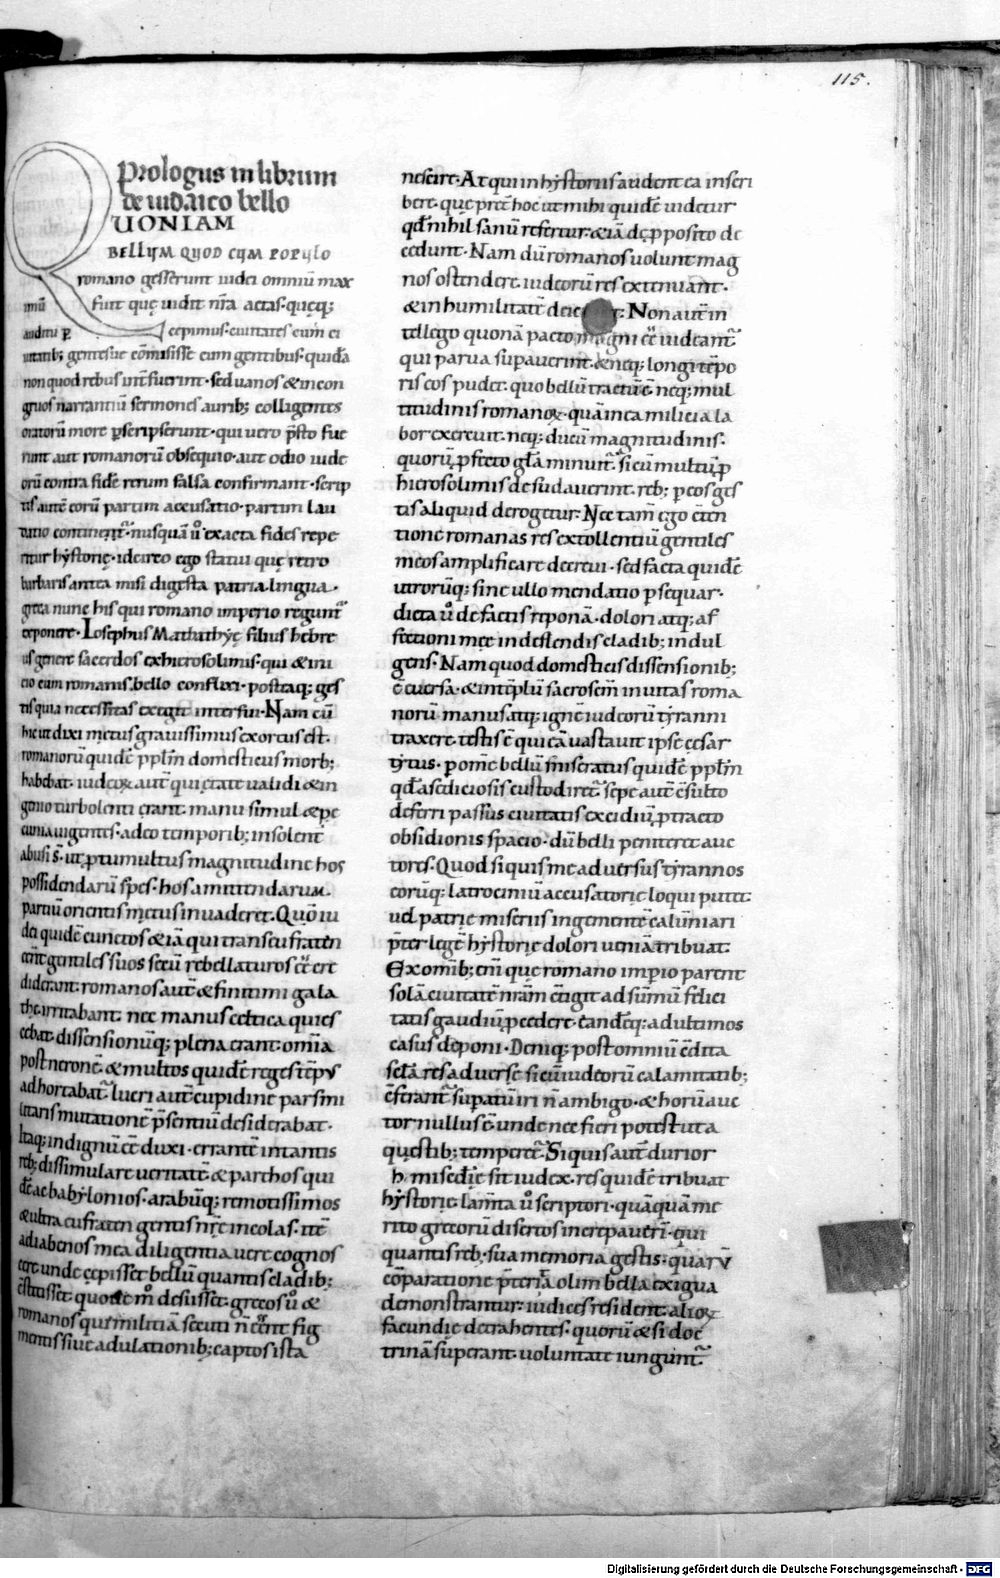 115.
Prologus in librum
de iudaico bello
QUONIAM
BELLUM QUOD CUM POPULO
romano gesserunt iudei omniū max
imū fuit quę uidit nr̄a aetas· queq;
auditu ꝑcepimus· ciuitates cum ci
uitatib; gentesue cōmisisse cum gentibus· quidā
non quod rebus int̄fuerint· sed uanos & incon
gruos narrantiū sermones aurib; colligentes
oratorū more ꝑscripserunt· qui uero p̄sto fue
runt aut romanorū obsequio· aut odio iude
orū contra fidē rerum falsa confirmant· scrip
tis autē eorū partim accusatio· partim lau
datio continet᷑· nusquā ů exacta fides repe
ritur hẏstorię· idcirco ego statui quę retro
barbaris antea misi digesta patria lingua·
greca nunc his qui romano imperio regunt᷑
exponere· Iosephus Mathathẏę filius hebre
us genere sacerdos ex hierosolimis· qui & ini
cio cum romanis bello conflixi· posteaq; ges
tis quia necessitas exegit interfui· Nam cū
hic ut dixi motus grauissimus exortus est·
romanorū quidē pplm̄ domesticus morb;
habebat· iudeoꝝ autē qui ętate ualidi & in
genio turbolenti erant· manu simul & pe
cunia uigentes· adeo temporib; insolent̄
abusi s̄· ut ꝓ tumultus magnitudine hos
possidendarū spes· hos amittendarum
partiū orientis metus inuaderet· Quō iu
dei quidē cunctos & iā qui trans eufraten
eēnt gentiles suos secū rebellaturos eē cre
diderant· romanos autē & finitimi gala
thę irritabant· nec manus celtica quies
cebat· dissensionūq; plena erant omīa
post neronē· & multos quidē reges tēpus
adhortabat᷑· lucri autē cupidine parsimi
litans mutationē p̄sentiū desiderabat·
Itaq; indignū eē duxi· errantē in tantis
reb; dissimulare ueritatē· & parthos qui
dē ac babẏlonios· arabūq; remotissimos
& ultra eufraten gentis nr̄ę incolas· itē
adiabenos mea diligentia uere cognos
cere unde cępisset bellū quantis cladib;
c̄stitisset· quoue m̊ desisset· grecos ů &
romanos qui militiā secuti n̄ eēnt fig
mentis siue adulationib; captos ista
nescire· At qui in hẏstoriis audent ea inscri
bere· quę pret̄ hoc ut mihi quidē uidetur
qd̄ nihil sanū refertur· & iā de ꝓposito de
cedunt· Nam dū romanos uolunt mag
nos ostendere· iudeorū res extenuant·
& in humilitatē deiciunt· Non autē in
tellego quonā pacto magni eē uideant᷑
qui parua supauerint· & neq; longi tēpo
ris eos pudet· quo bellū tractū ē· neq; mul
titudinis romanoꝝ· quā in ea milicia la
bor exercuit· neq; ducū magnitudinis·
quorū ꝓfecto gl̄a minuit᷑· si cū multū ꝓ
hierosolimis desudauerint· reb; ꝑ eos ges
tis aliquid derogetur· Nec tam̄ ego c̄ten
tione romanas res extollentiū gentiles
meos amplificare decreui· sed facta quidē
utrorūq; sine ullo mendatio ꝑsequar·
dicta ů de factis reponā· dolori atq; af
fectioni meę in deflendis cladib; indul
gens· Nam quod domesticis dissensionib;
ē euersa· & in tēplū sacrosc̄m inuitas roma
norū manus atq; ignē iudeorū tẏranni
traxere· testis ē qui eā uastauit ipse cęsar
tẏtus· ꝑ omē bellū miseratus quidē pplm̄
qd̄ a sediciosis custodiret᷑· sepe autē c̄sulto
deferri passus ciuitatis excidiū ꝓtracto
obsidionis spacio· dū belli peniteret auc
tores· Quod si quis me aduersus tẏrannos
eorūq; latrociniū accusatorie loqui putet·
uel patrię miseriis ingementē calūniari
pr̄ter legē hẏstorię dolori ueniā tribuat·
Ex omīb; enī quę romano impio parent
solā ciuitatē nr̄am c̄tigit ad sūmū felici
tatis gaudiū ꝓcedere· eandēq; ad ultimos
casus deponi· Deniq; post omniū c̄dita
scl̄a res aduersę si cū iudeorū calamitatib;
c̄ferant᷑ supatū iri n̄ ambigo· & horū auc
tor nullus ē· unde nec fieri potest ut a
questib; temperet᷑· Si quis autē durior
h̥ misc̄dię sit iudex· res quidē tribuat
hẏstorię· lam̄ta ů scriptori· quāquā me
rito grecorū disertos increpauerī· qui
quantis reb; sua memoria gestis· quarū
cōparatione p̄teria olim bella exigua
demonstrantur· iudices resident· alioꝝ
facundię detrahentes· quorū & si doc
trinā superant· uoluntate iungunt᷑·
Digitalisierung gefördert durch die Deutsche Forschungsgemeinschaft - DFG